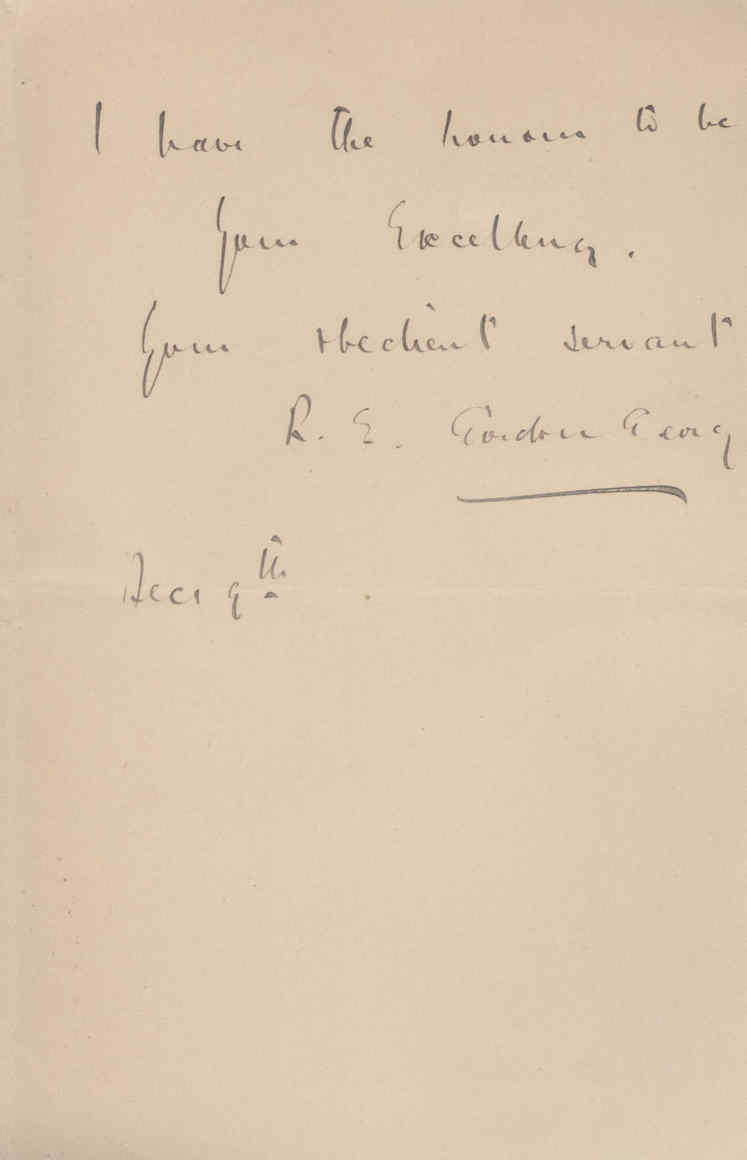 I have the honour to be
Your Excellency.
Your obedient servant
R. E. Gordon George
Dec 9th